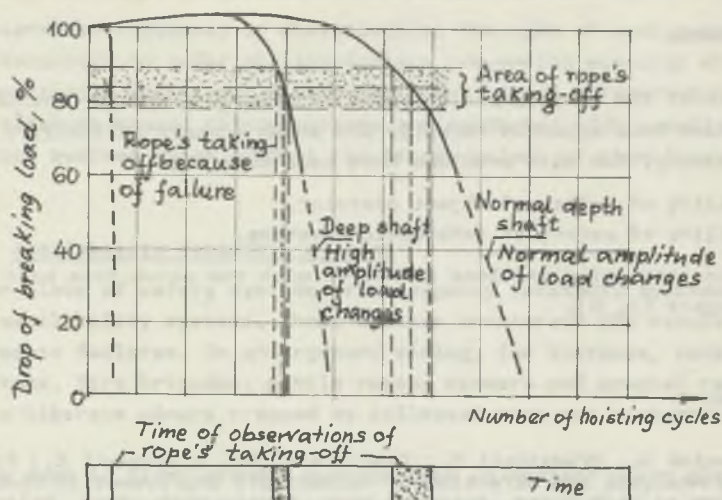 Drop of breaking load, %
100
80
60
40
20
0
Area of rope's
taking-off
Rope's taking-
off because
of failure
Deep shaft
High
amplitude
of load
changes
Normal depth
shaft
Normal amplitude
of load changes
Number of hoisting cycles
Time of observations of
rope's taking-off
Time